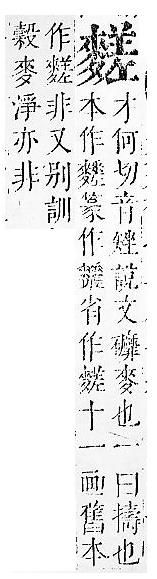 䴾
才何切音矬說文䃺麥也一曰擣也
本作篆作省作䴾十一画舊本
作䴾非又別訓
穀麥淨亦非